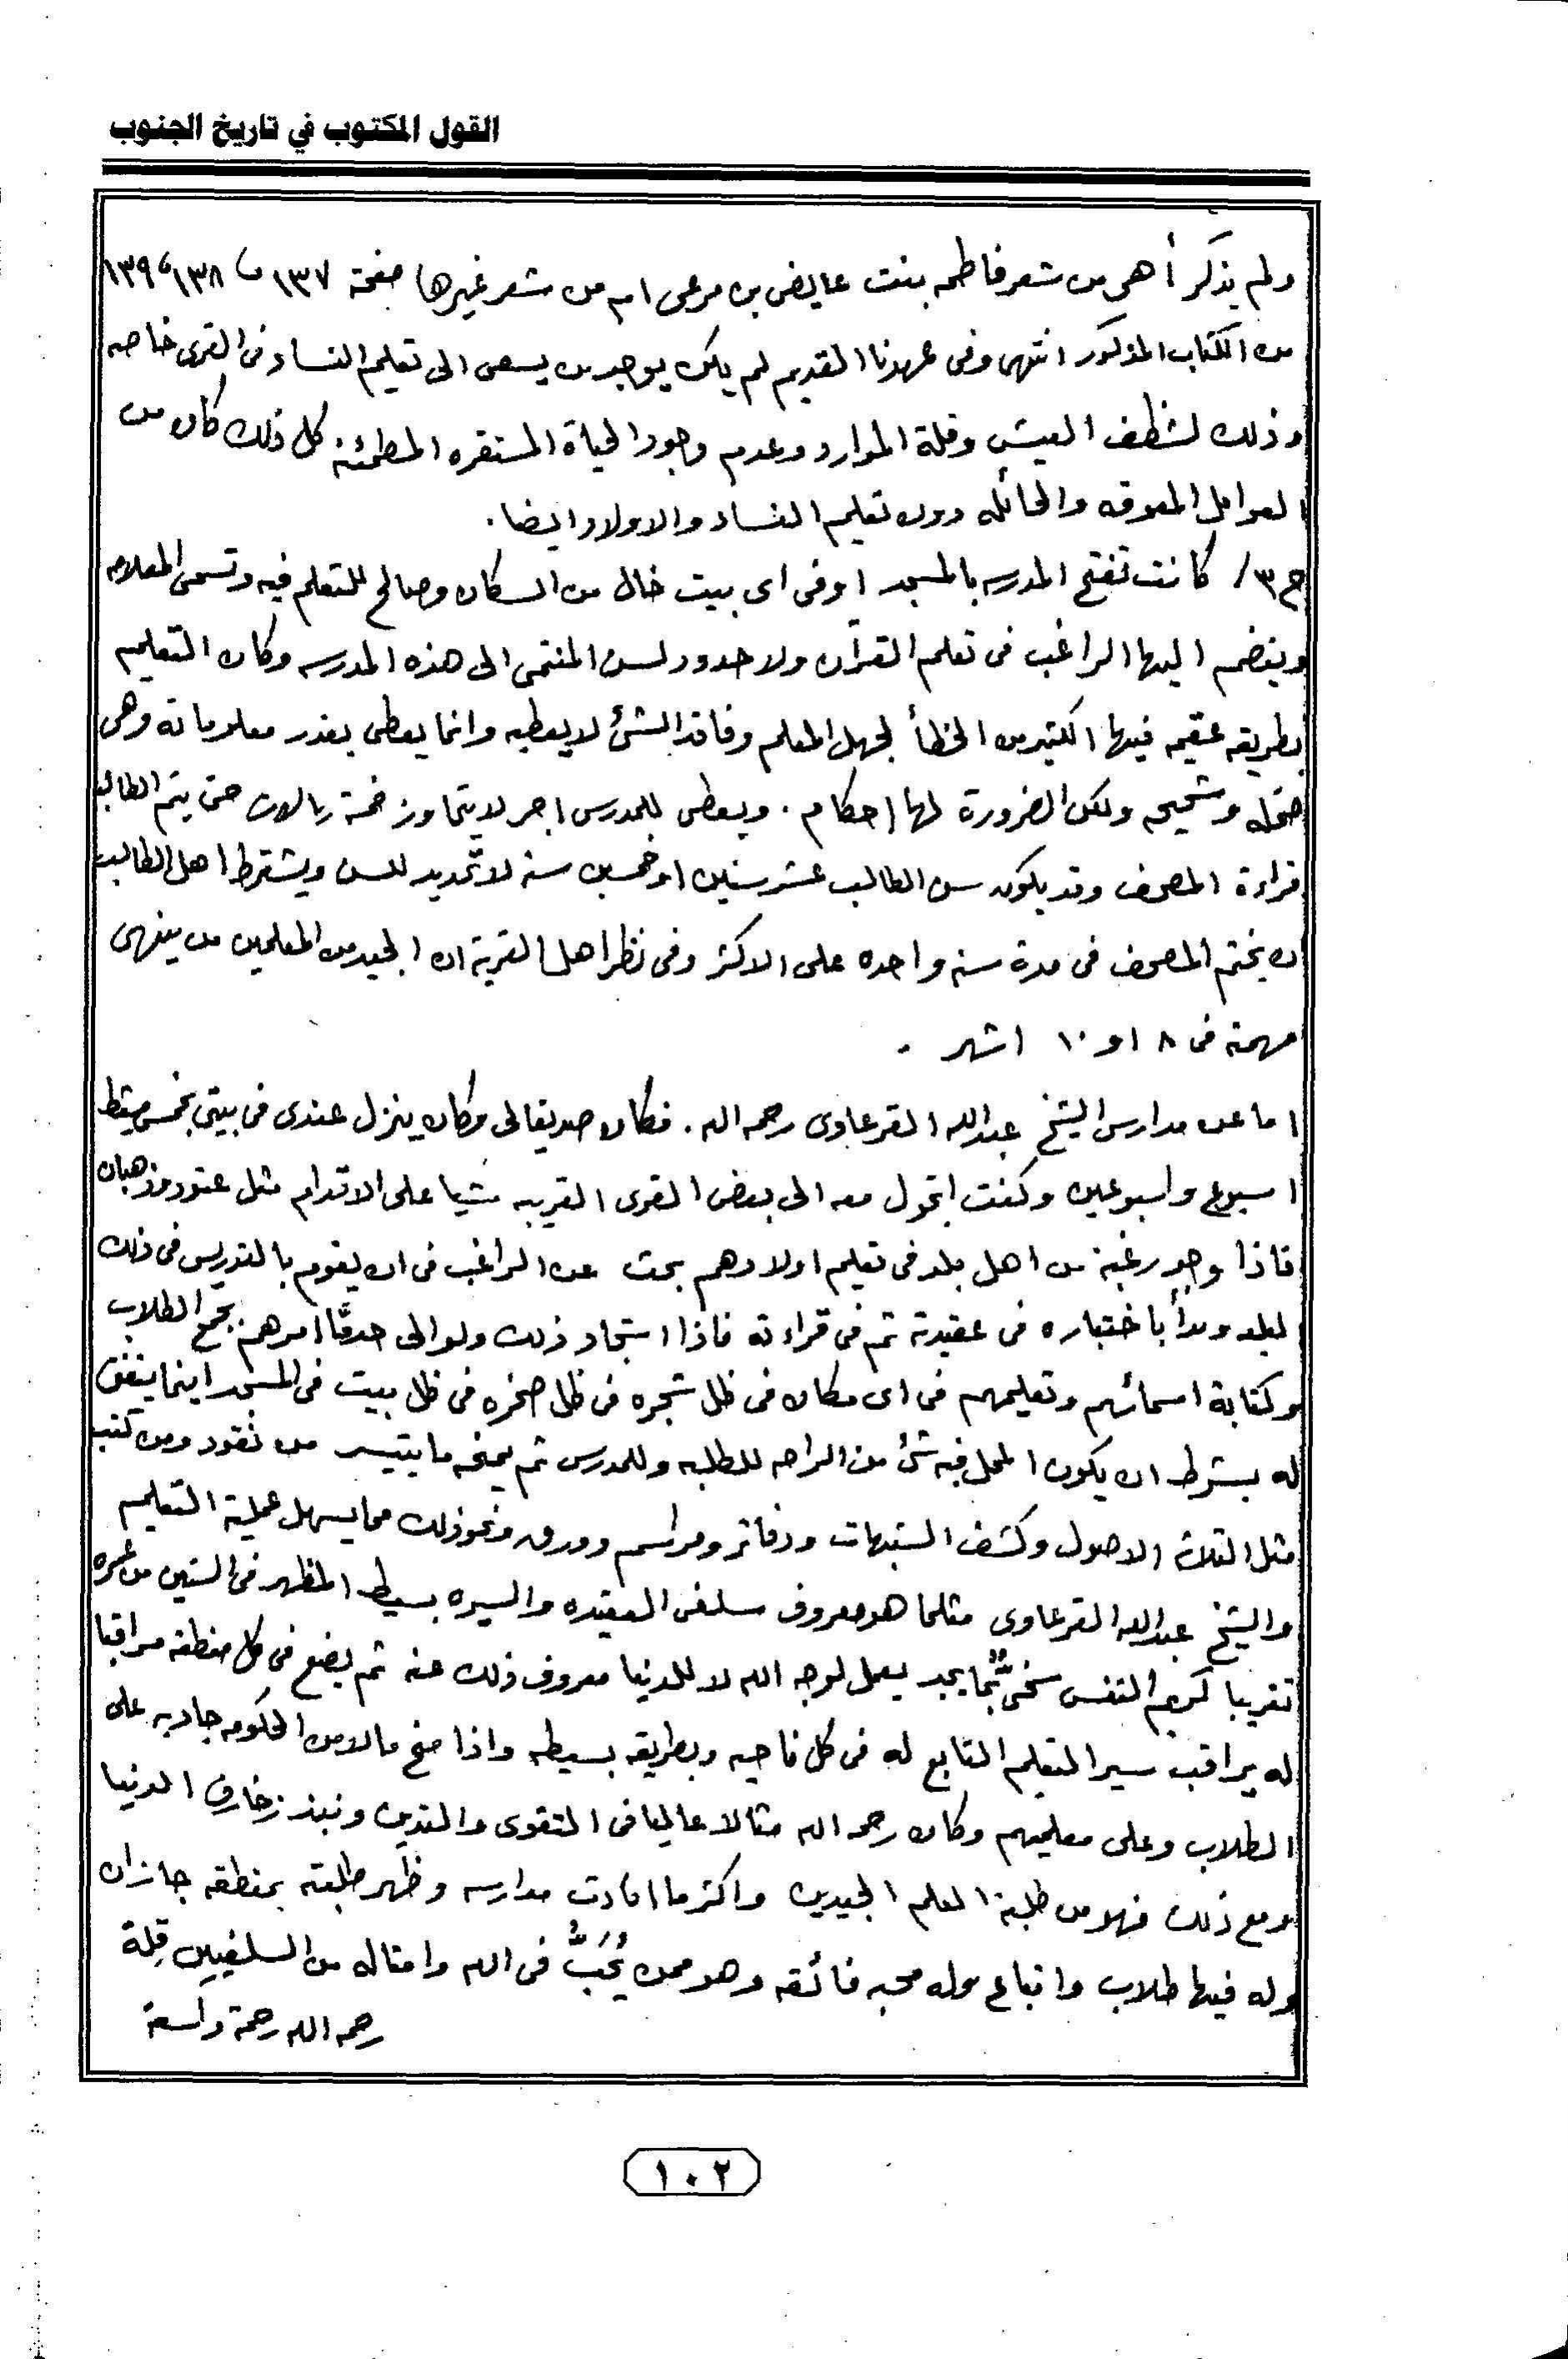 القول المكتوب في تاريخ الجنوب
ولم يذكر أهى من شعر فاطمه بنت عايض بن مرعى ام من شعر غيرها صفحة ١٣٧ ، ١٣٨ ، ١٣٩
من الكتاب المذكور انتهى وفى عهدنا القديم لم يكن يوجد من يسعى الى تعليم النساء فى القرى خاصه
وذلك لشظف العيش وقلة الموارد وعدم وجود الحياة المستقره المطمئنه كل ذلك كان من
العوامل المعوقه والحائله دون تعليم النساء والاولاد ايضا .
ج ٣ / كانت تفتح المدرسه بالمسجد او فى اى بيت خال من السكان وصالح للتعلم فيه وتسمى المعلامه
وينضم اليها الراغب فى تعلم القرآن ولا حدود لسن المنتمى الى هذه المدرسه وكان التعليم
بطريقه عقيمه فيها الكثير من الخطأ لجهل المعلم وفاقد الشئ لا يعطيه وانما يعطى بقدر معلوماته وهى
ضحله وشحيحه ولكن الضرورة لها احكام . ويعطى للمدرس اجر لا يتجاوز خمسة ريالات حتى يتم الطالب
قراءة المصحف وقد يكون سن الطالب عشر سنين او خمسين سنه لا تحديد للسن ويشترط اهل الطالب
ان يختم المصحف فى مدة سنه واحده على الاكثر وفى نظر اهل القرية ان الجيد من المعلمين من ينهى
مهمته فى ٨ او ١٠ اشهر .
اما عن مدارس الشيخ عبدالله القرعاوى رحمه الله . فكان صديقا لى وكان ينزل عندى فى بيتى بخميس مشيط
اسبوع واسبوعين وكنت اتجول معه الى بعض القرى القريبه مشيا على الاقدام مثل عتود وذهبان
فاذا وجد رغبة من اهل بلد فى تعليم اولادهم بحث عن الراغب فى ان يقوم بالتدريس فى ذلك
البلد وبدأ باختباره فى عقيدته ثم فى قراءته فاذا استجاد ذلك ولو الى حد ما امرهم بجمع الطلاب
وكتابة اسمائهم وتعليمهم فى اى مكان فى ظل شجره فى ظل صخره فى ظل بيت فى المسجد اينما يتفق
له بشرط ان يكون المحل فيه شئ من الراحه للطلبه وللمدرس ثم يمنحه ما يتيسر من نقود ومن كتب
مثل الثلاثه الاصول وكشف الشبهات ودفاتر ومراسم وورق ونحو ذلك مما يسهل عملية التعليم
والشيخ عبدالله القرعاوى مثلما هو معروف سلفى العقيده والسيره بسيط المظهر فى الستين من عمره
تقريبا كريم النفس سخى بما يجد يعمل لوجه الله لا للدنيا معروف ذلك عنه ثم يضع فى كل منطقه مراقبا
له يراقب سير التعليم التابع له فى كل ناحيه وبطريقه بسيطه واذا منح مالا من الحكومه جاد به على
الطلاب وعلى معلميهم وكان رحمه الله مثالا عاليا فى التقوى والتدين ونبذ زخارف الدنيا
ومع ذلك فهو من طلبة العلم الجيدين واكثر ما افادت مدارسه وظهر طلبته بمنطقه جازان
وله فيها طلاب واتباع وله محبه فائقه وهو ممن يُحَبُّ فى الله وامثاله من السلفيين قِلة
رحمه الله رحمة واسعة
١٠٢